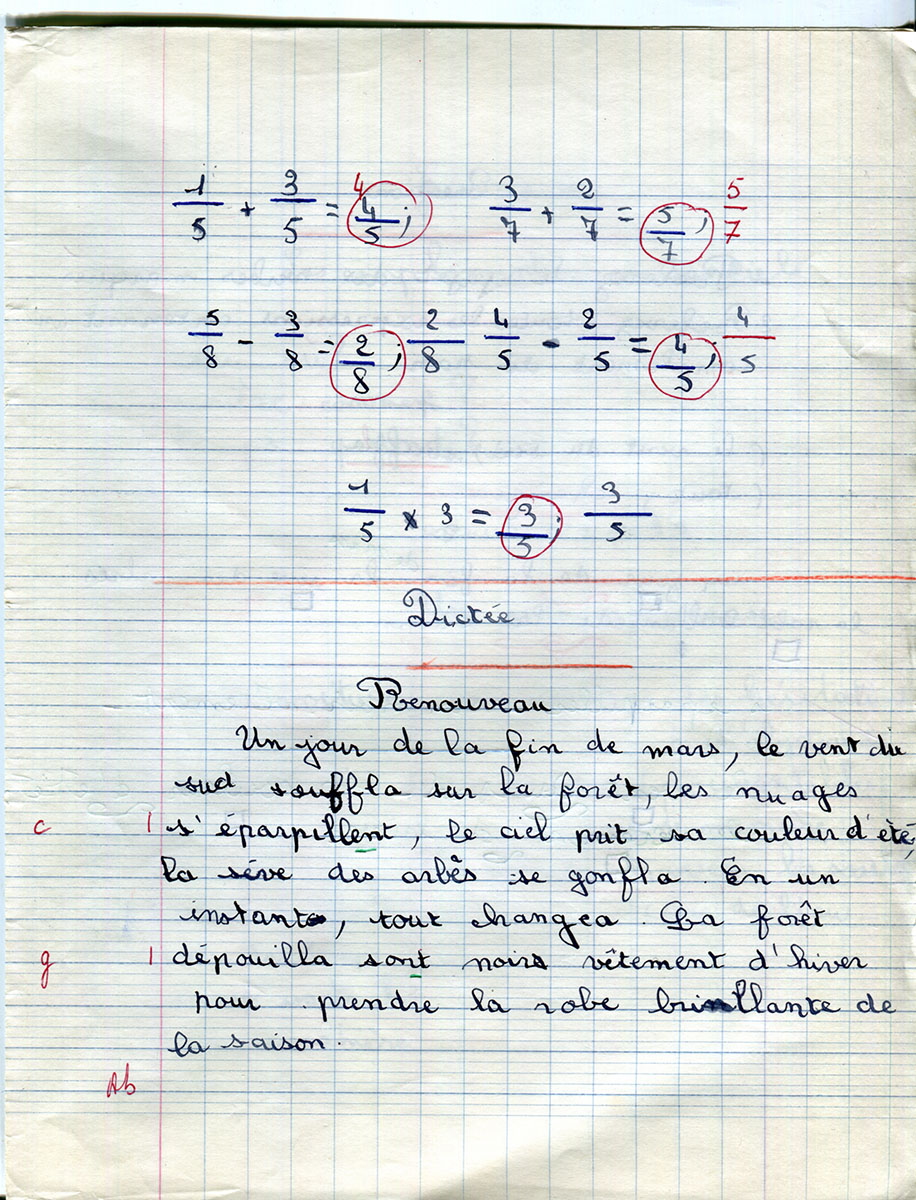 1/5 + 3/5 = 4 4/5 ; 3/7 + 2/7 = 5/7 ; 5/7
5/8 - 3/8 = 2/8 ; 2/8 4/5 - 2/5 = 4/5 ; 4/5
1/5 × 3 = 3/5 ; 3/5
Dictée
Renouveau
Un jour de la fin de mars, le vent du
sud souffla sur la forêt, les nuages
c 1 s'éparpillent, le ciel prit sa couleur d'été,
la séve des arbês se gonfla. En un
instant, tout changea. La forêt
g 1 dépouilla sont noirs vêtement d'hiver
pour prendre la robe brillante de
la saison.
Ab